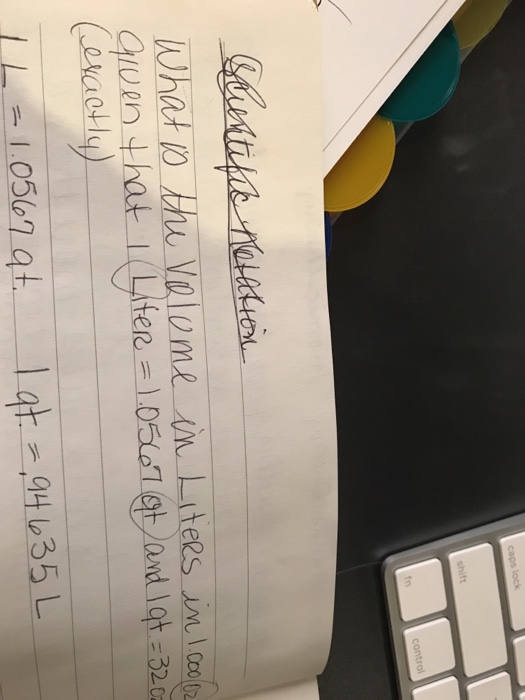 Scientific Notation
What is the Volume in Liters in 1.000 oz
given that 1 Liter = 1.0567 qt and 1 qt. = 32 oz
(exactly)
1 L = 1.0567 qt. 1 qt. = .94635 L
caps lock
shift
fn
control